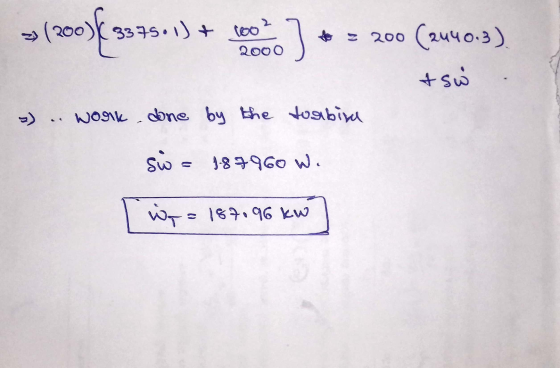 ⇒ (200) [(3375.1) + 100²/2000] = 200 (2440.3)
+ sẇ
⇒ ∴ work done by the turbine
sẇ = 187960 W.
ẇ_T = 187.96 kW